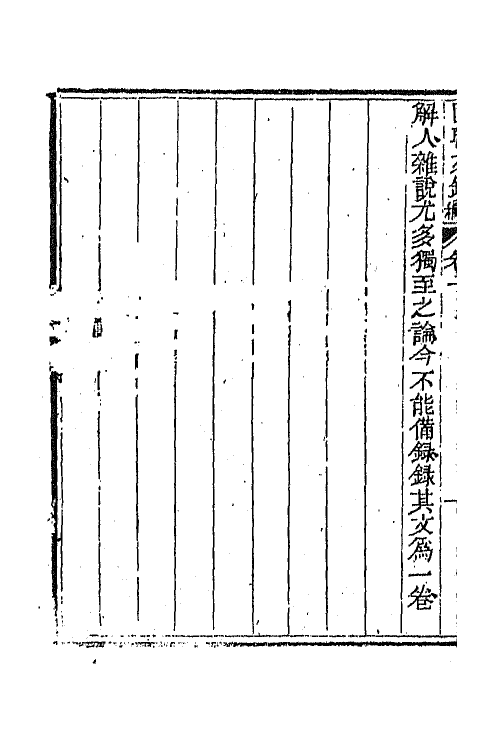 解人雜說尤多獨至之論今不能備録録其文爲一卷